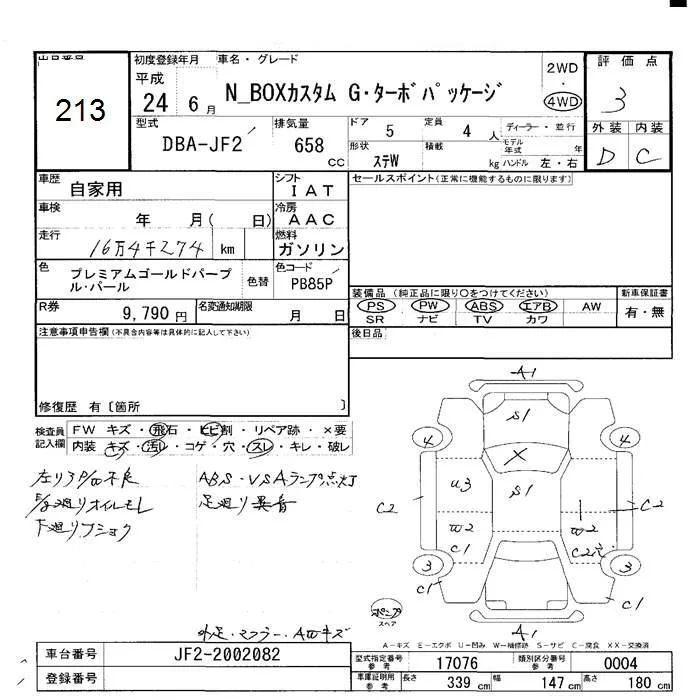 出品番号
213
初度登録年月 車名・グレード
平成 24 6 月
N_BOXカスタム G・ターボパッケージ
2WD
・
4WD
評価点
3
型式
DBA-JF2
排気量
658 CC
ドア 5
定員 4 人
ディーラー・並行
形状 ステW
積載 kg
モデル年式 年
ハンドル 左・右
外装 内装
D C
車歴 自家用
シフト IAT
セールスポイント(正常に機能するものに限ります)
車検 年 月( 日)
冷房 AAC
走行 16万4千274 km
燃料 ガソリン
色 プレミアムゴールドパープル・パール
色替
色コード PB85P
R券 9,790 円
名変通知期限 月 日
装備品(純正品に限り○をつけてください)
PS PW ABS エアB AW
SR ナビ TV カワ
新車保証書
有・無
注意事項申告欄(不具合内容等は具体的に記入して下さい)
後日品
修復歴 有〔箇所 〕
検査員記入欄
FW キズ・飛石・ヒビ割・リペア跡・×要
内装・キズ・汚レ・コゲ・穴・スレ・キレ・破レ
ABS・VSAランプ点灯
足廻り異音
下廻りフショク
外足・マフラー・
A1
S1
4 4
X
U3
S1
C2
C2
W2
W2
C1
3 3
C1
C1
A1
スペア
A-キズ E-エクボ U-凹み W-補修跡 S-サビ C-腐食 XX-交換済
車台番号 JF2-2002082
登録番号
型式指定番号 参考 17076
類別区分番号 参考 0004
車庫証明用 参考 長さ 339 cm 幅 147 cm 高さ 180 cm